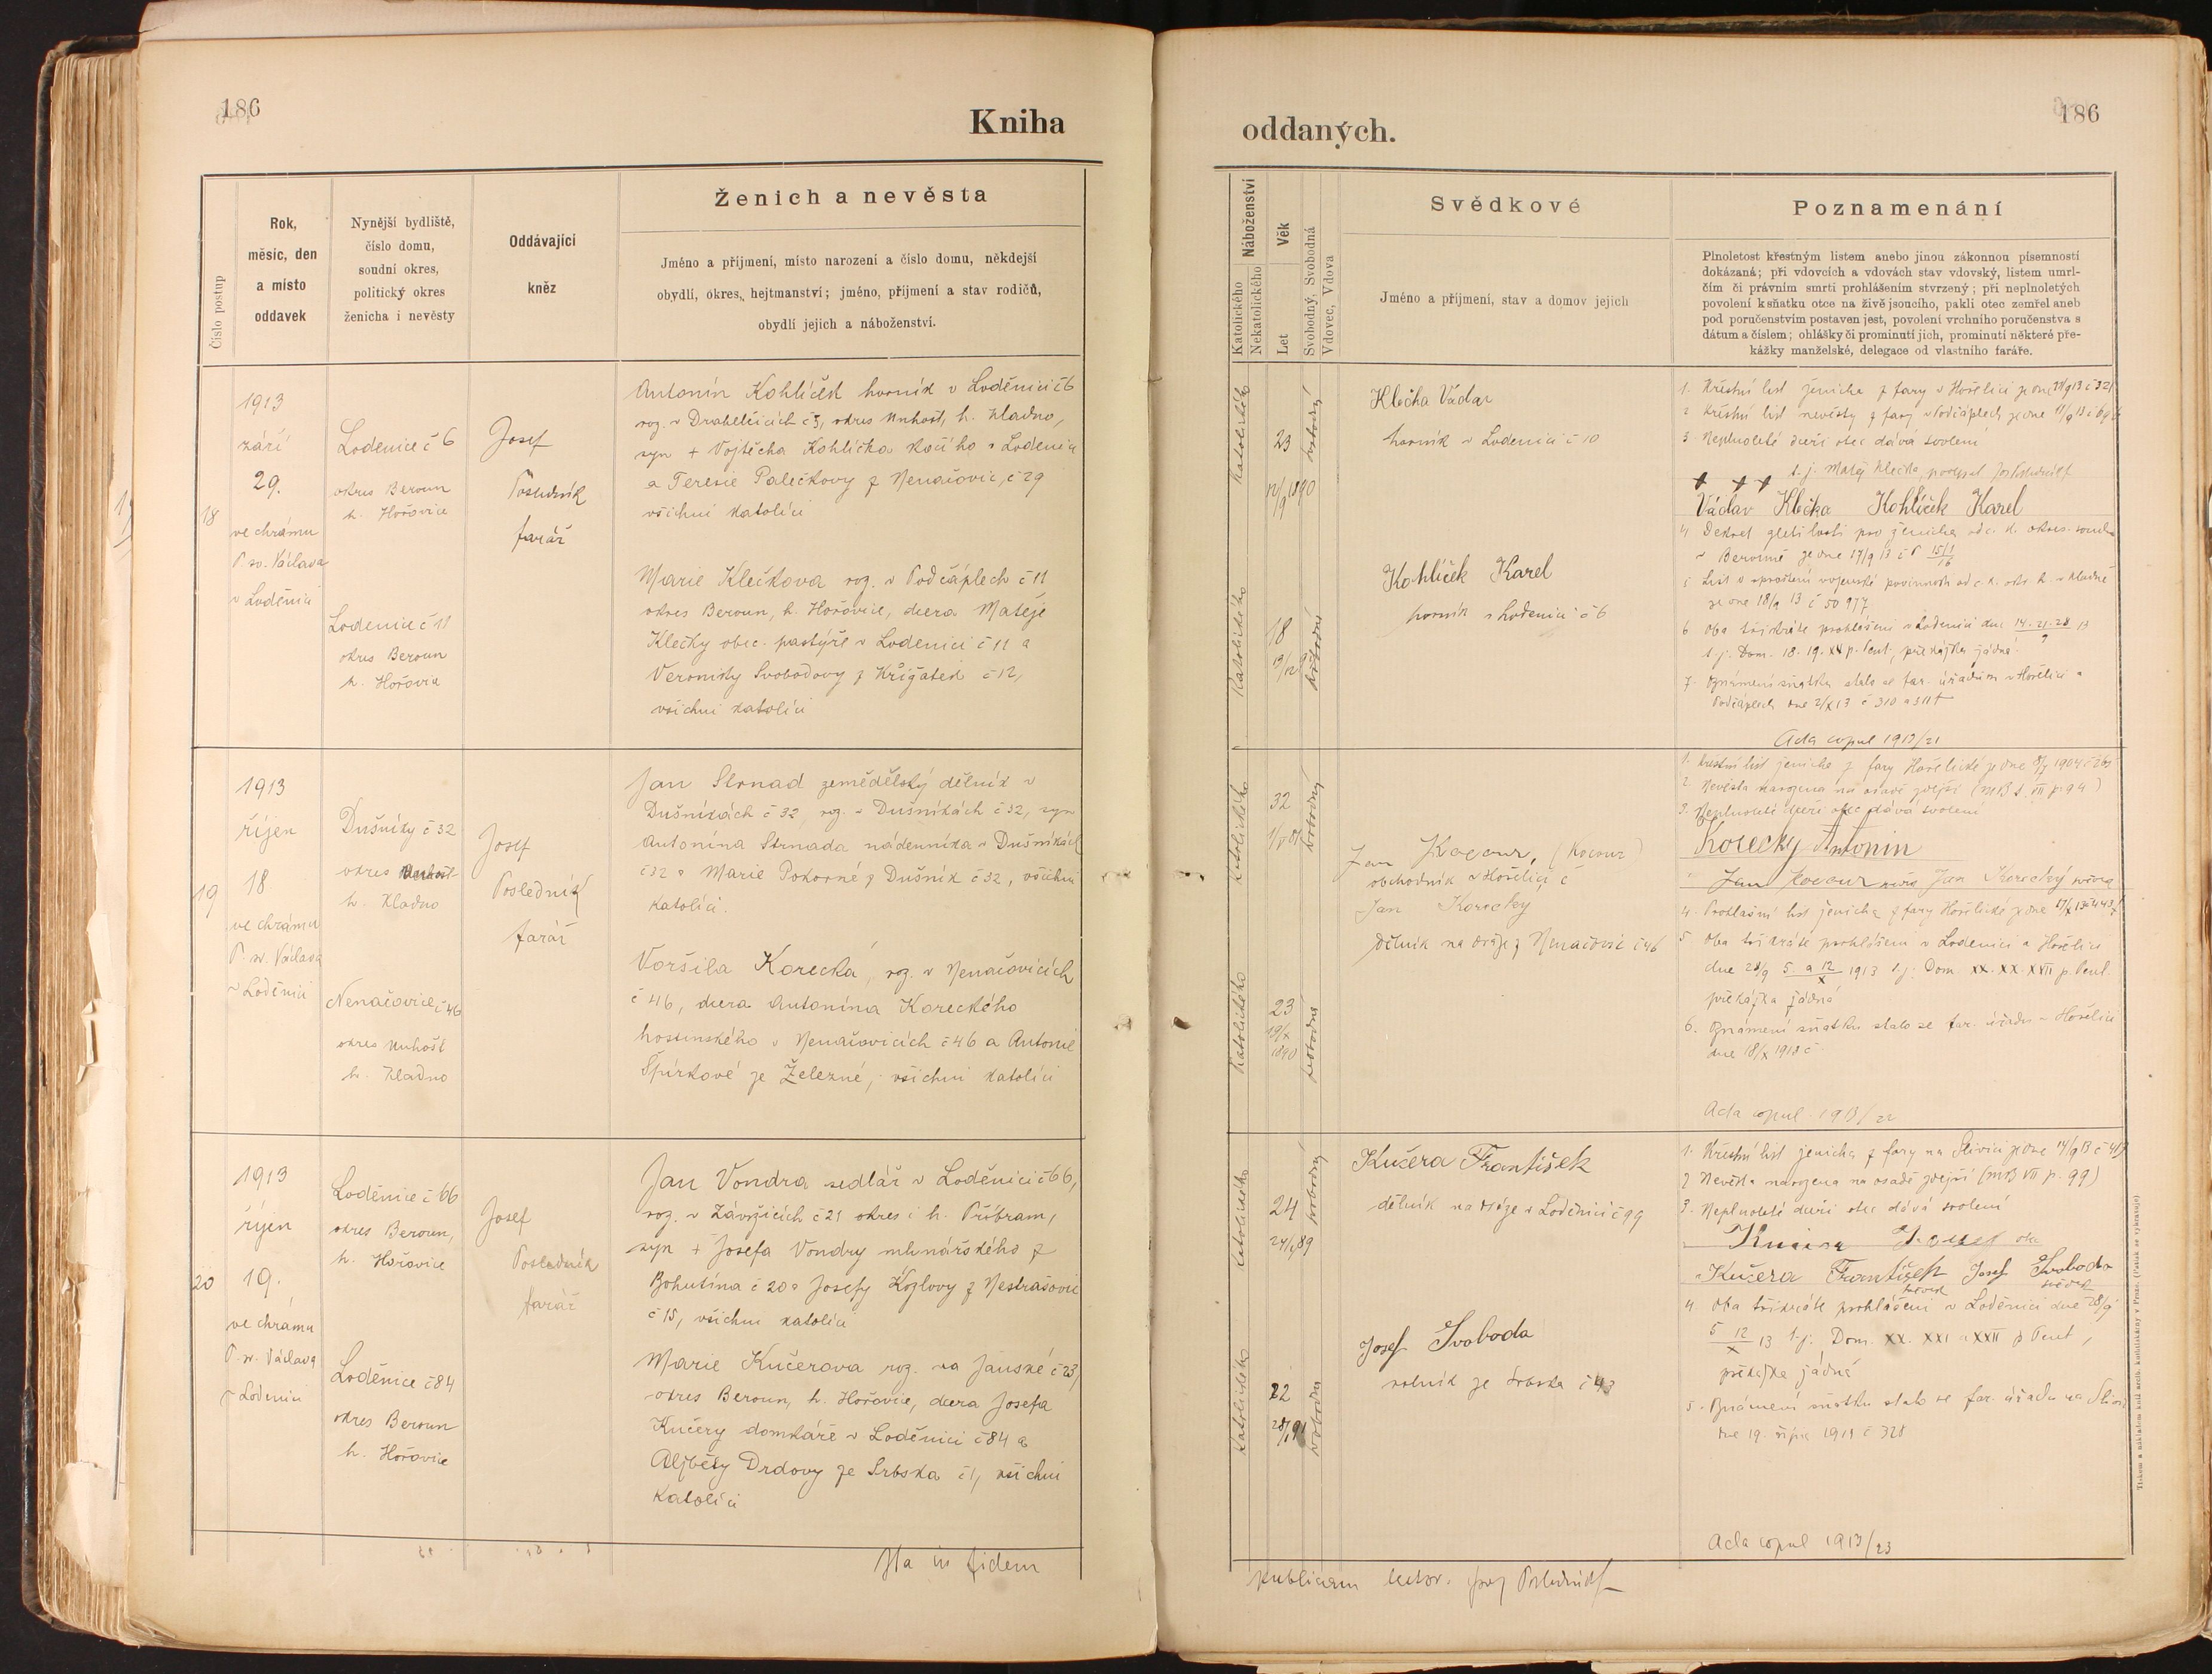 186
Kniha
Číslo postup
Rok,
měsíc, den
a místo
oddavek
Nynější bydliště,
číslo domu,
soudní okres,
politický okres
ženicha i nevěsty
Oddávající
kněz
Ženich a nevěsta
Jméno a příjmení, místo narození a číslo domu, někdejší
obydlí, okres, hejtmanství; jméno, příjmení a stav rodičů,
obydlí jejich a náboženství.
18
1913
září
29.
ve chrámu
P. sv. Václava
v Loděnici
Lodenice č 6
okres Beroun
h. Hořovice
Lodenice č 11
okres Beroun
h. Hořovice
Josef
Posledník
farář
Antonín Kohlíček horník v Loděnici č 6
roz. v Drahelčicích č 5, okres Unhošt, h. Kladno,
syn + Vojtěcha Kohlíčka kočího v Lodenici
a Teresie Palečkovy z Nenačovic, č 29
všichni katolíci
Marie Klečkova roz. v Podčáplech č 11
okres Beroun, h. Hořovice, dcera Matěje
Klečky obec. pastýře v Lodenici č 11 a
Veroniky Svobodovy z Křížatek č 12,
všichni katolíci
19
1913
říjen
18
ve chrámu
P. sv. Václava
v Loděnici
Dušníky č 32
okres Unhošt
h. Kladno
Nenačovice č 46
okres Unhošt
h. Kladno
Josef
Posledník
farář
Jan Strnad zemědělský dělník v
Dušníkách č 32, roz. v Dušníkách č 32, syn
Antonína Strnada nádenníka v Dušníkách
č 32 a Marie Pokorné z Dušník č 32, všichni
katolíci.
Voršila Korecká, roz. v Nenačovicích
č 46, dcera Antonína Koreckého
hostinského v Nenačovicích č 46 a Antonie
Špírkové ze Železné, všichni katolíci
20
1913
říjen
19.
ve chrámu
P. sv. Václava
v Lodenici
Loděnice č 66
okres Beroun,
h. Hořovice
Loděnice č 84
okres Beroun
h. Hořovice
Josef
Posledník
farář
Jan Vondra sedlář v Loděnici č 66,
roz. v Závržicích č 21 okres i h. Příbram,
syn + Josefa Vondry mlynářského z
Bohutína č 20 a Josefy Kozlovy z Nestrašovic
č 15, všichni katolíci
Marie Kučerova roz. na Janské č 23,
okres Beroun, h. Hořovice, dcera Josefa
Kučery domkáře v Loděnici č 84 a
Alžběty Drdovy ze Srbska č 1, všichni
katolíci
Ita in fidem
186
oddaných.
Náboženství
Katolického
Nekatolického
Věk
Let
Svobodný, Svobodná
Vdovec, Vdova
Svědkové
Jméno a příjmení, stav a domov jejich
Poznamenání
Plnoletost křestným listem anebo jinou zákonnou písemností
dokázaná; při vdovcích a vdovách stav vdovský, listem umrl-
čím či právním smrti prohlášením stvrzený; při neplnoletých
povolení k sňatku otce na živě jsoucího, pakli otec zemřel aneb
pod poručenstvím postaven jest, povolení vrchního poručenstva s
dátum a číslem; ohlášky či prominutí jich, prominutí některé pře-
kážky manželské, delegace od vlastního faráře.
katolického
23
12/9 1890
svobodný
Katolického
18
svobodná
Klečka Václav
horník v Lodenici č 10
Kohlíček Karel
horník v Lodenici č 6
1. Křestní list ženicha z fary v Hořelici ze dne 28/9 13 č 321
2 Křestní list nevěsty z fary v Podčáplech ze dne
3. Neplnoleté dceři otec dává svolení
+ + + t. j. Matěj Klečka, podepsal Jos. Posledník
Václav Klečka Kohlíček Karel
4 Dekret zletilosti pro ženicha od c. k. okres. soudu
v Berouně ze dne 17/9 13
5 List o sproštění vojenské povinnosti od c. k. okr. h. v Kladně
ze dne 18/9 13 č 50977
6 Oba třikráte prohlášeni v Lodenici dne 14. 21. 28/9 13
t. j. Dom. 18. 19. XX p. Pent., překážka žádná.
7. Oznámení sňatku stalo se far. úřadům v Hořelici a
Podčáplech dne 2/X 13 č 310 a 311
Acta copul 1913/21
katolického
32
1/V 81
svobodný
Katolického
23
19/X
1890
svobodná
Jan Kocour, (Kocour)
obchodník v Hořelici č
Jan Korecky
Dělník na dráze z Nenačovic č 46
1. Křestní list ženicha z fary Hořelické ze dne 8/X 1904
2. Nevěsta narozena na osadě zdejší (MB t. VII p. 94)
3. Neplnoleté dceři otec dává svolení
Korecky Antonin
Jan Kocour Jan Korecky
4. Prohlašní list ženicha z fary Hořelické ze dne 17/X 13 č 443
5. Oba třikráte prohlášeni v Lodenici a Hořelici
dne 28/9 5. a 12/X 1913 t. j. Dom. XX. XX. XXII p Pent.
překážka žádná
6. Oznámení sňatku stalo se far. úřadu v Hořelici
dne 18/X 1913 č
Acta copul. 1913/22
katolického
24
svobodný
Katolického
22
svobodná
Kučera František
dělník na dráze v Loděnici č 99
Josef Svoboda
rolník ze Srbska č 43
1. Křestní list ženicha z fary na Slivici ze dne 14/9 13
2 Nevěsta narozena na osadě zdejší (MB VII p. 99)
3. Neplnoleté dceři otec dává svolení
Kučera Josef otec
Kučera František Josef Svoboda
svědek svědek
4. Oba třikráte prohlášeni v Loděnici dne 28/9
5 12/X 13 t. j. Dom. XX. XXI a XXII p Pent,
překážka žádná
5. Oznámení sňatku stalo se far. úřadu na Slivici
dne 19. října 1913 č 328
Acta copul 1913/23
publicam Josef Posledník